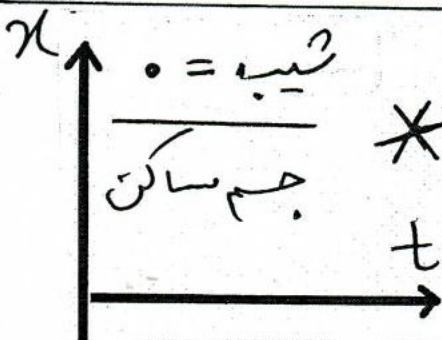 x
شیب = ۰
*
جسم ساکن
t